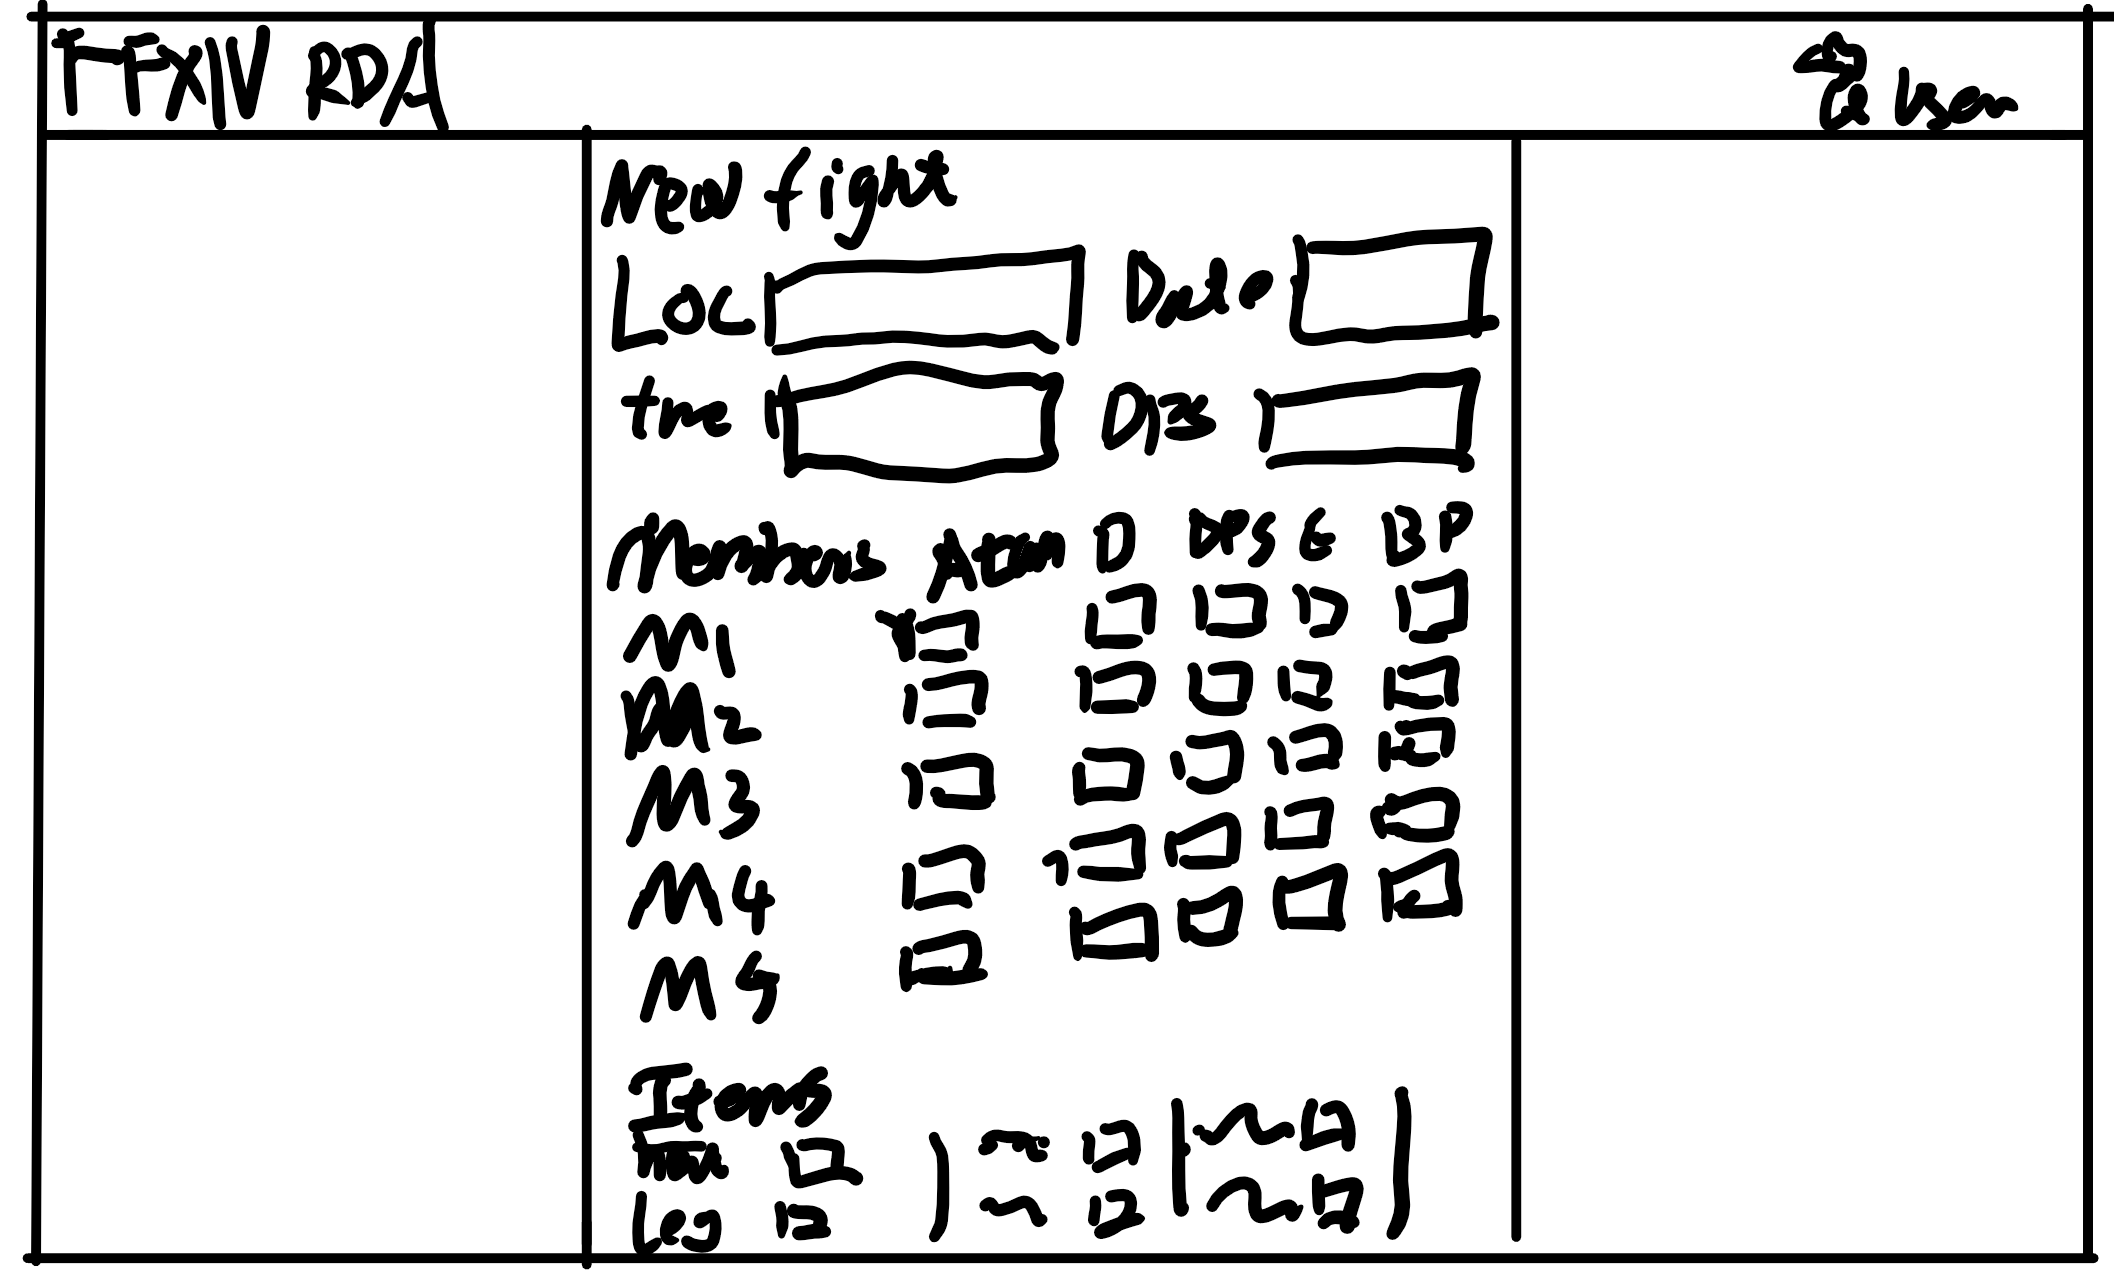 FFXIV RDA
User
New fight
Loc Date
time Dis
Members Atten D DPS E BP
M1
M2
M3
M4
M5
Items
Leg